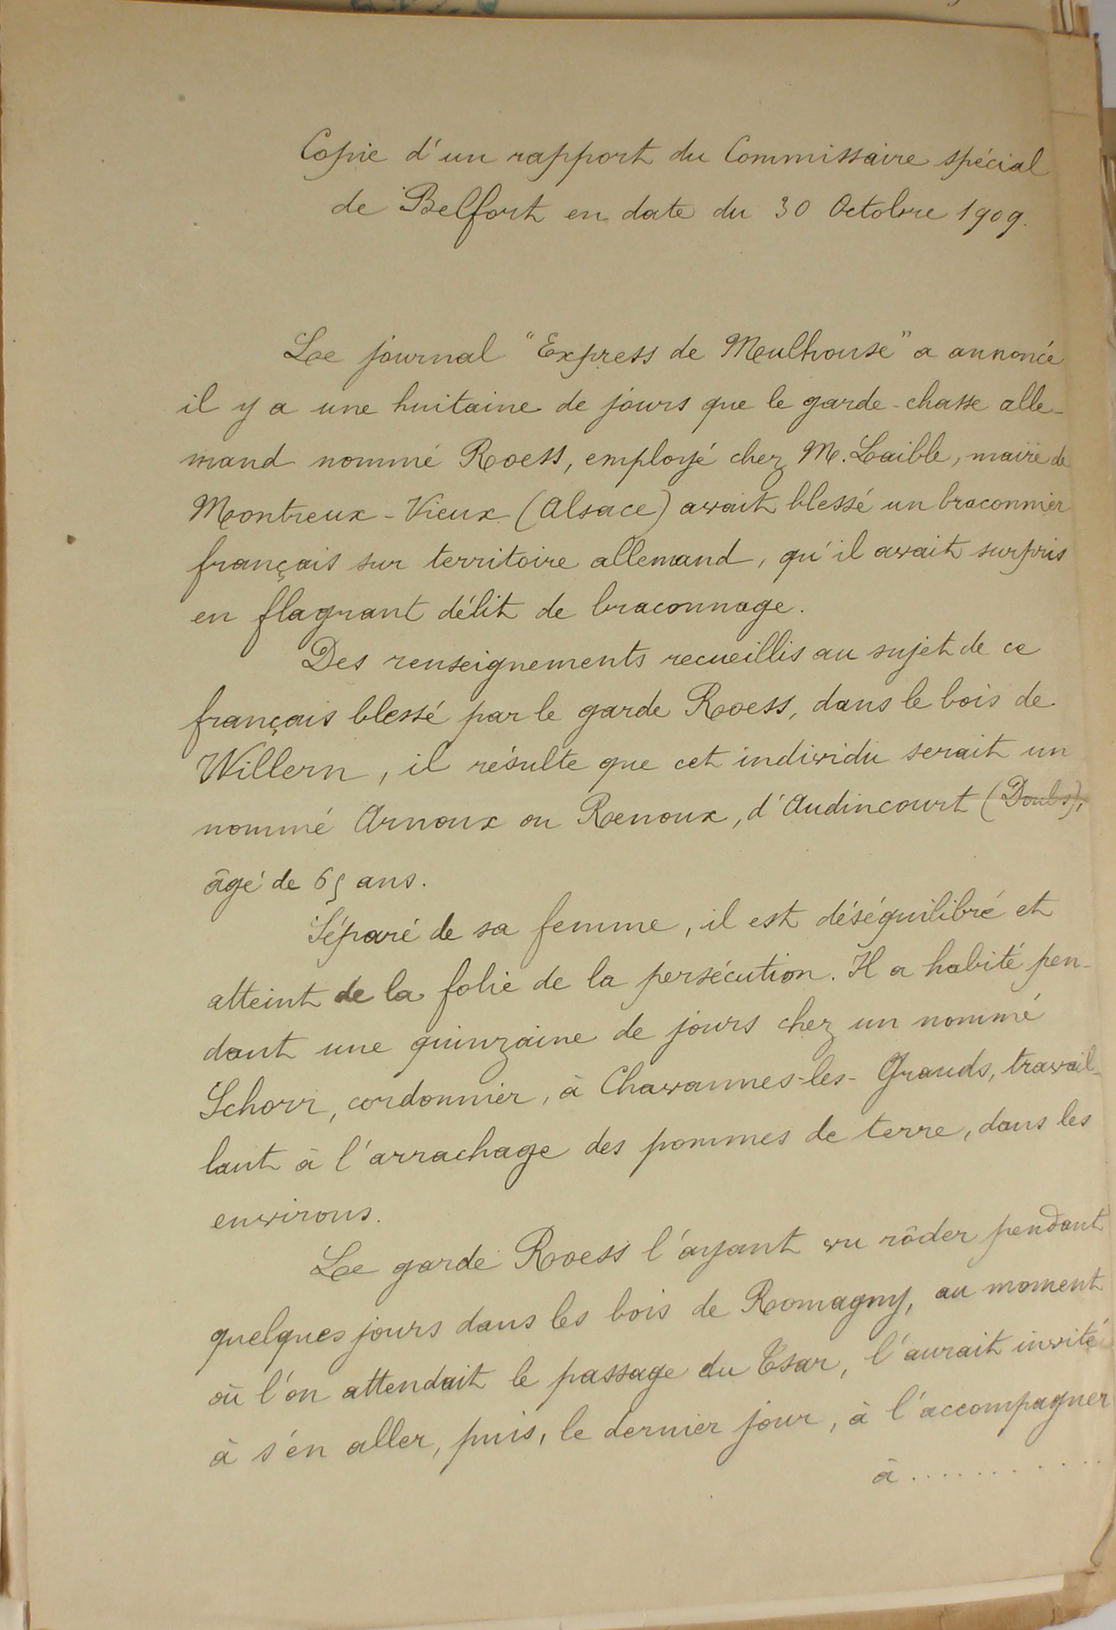 Copie d'un rapport du Commissaire spécial
de Belfort en date du 30 Octobre 1909.
Le journal "Express de Mulhouse" a annoncé
il y a une huitaine de jours que le garde-chasse alle-
mand nommé Roess, employé chez M. Laible, maire de
Montreux-Vieux (Alsace) avait blessé un braconnier
français sur territoire allemand, qu'il avait surpris
en flagrant délit de braconnage.
Des renseignements recueillis au sujet de ce
français blessé par le garde Roess, dans le bois de
Willern, il résulte que cet individu serait un
nommé Arnoux ou Renoux, d'Audincourt (Doubs),
âgé de 65 ans.
Séparé de sa femme, il est déséquilibré et
atteint de la folie de la persécution. Il a habité pen-
dant une quinzaine de jours chez un nommé
Schorr, cordonnier, à Chavannes-les-Grands, travail-
lant à l'arrachage des pommes de terre, dans les
environs.
Le garde Roess l'ayant vu rôder pendant
quelques jours dans les bois de Romagny, au moment
où l'on attendait le passage du Tsar, l'aurait invité
à s'en aller, puis, le dernier jour, à l'accompagner
à ...........